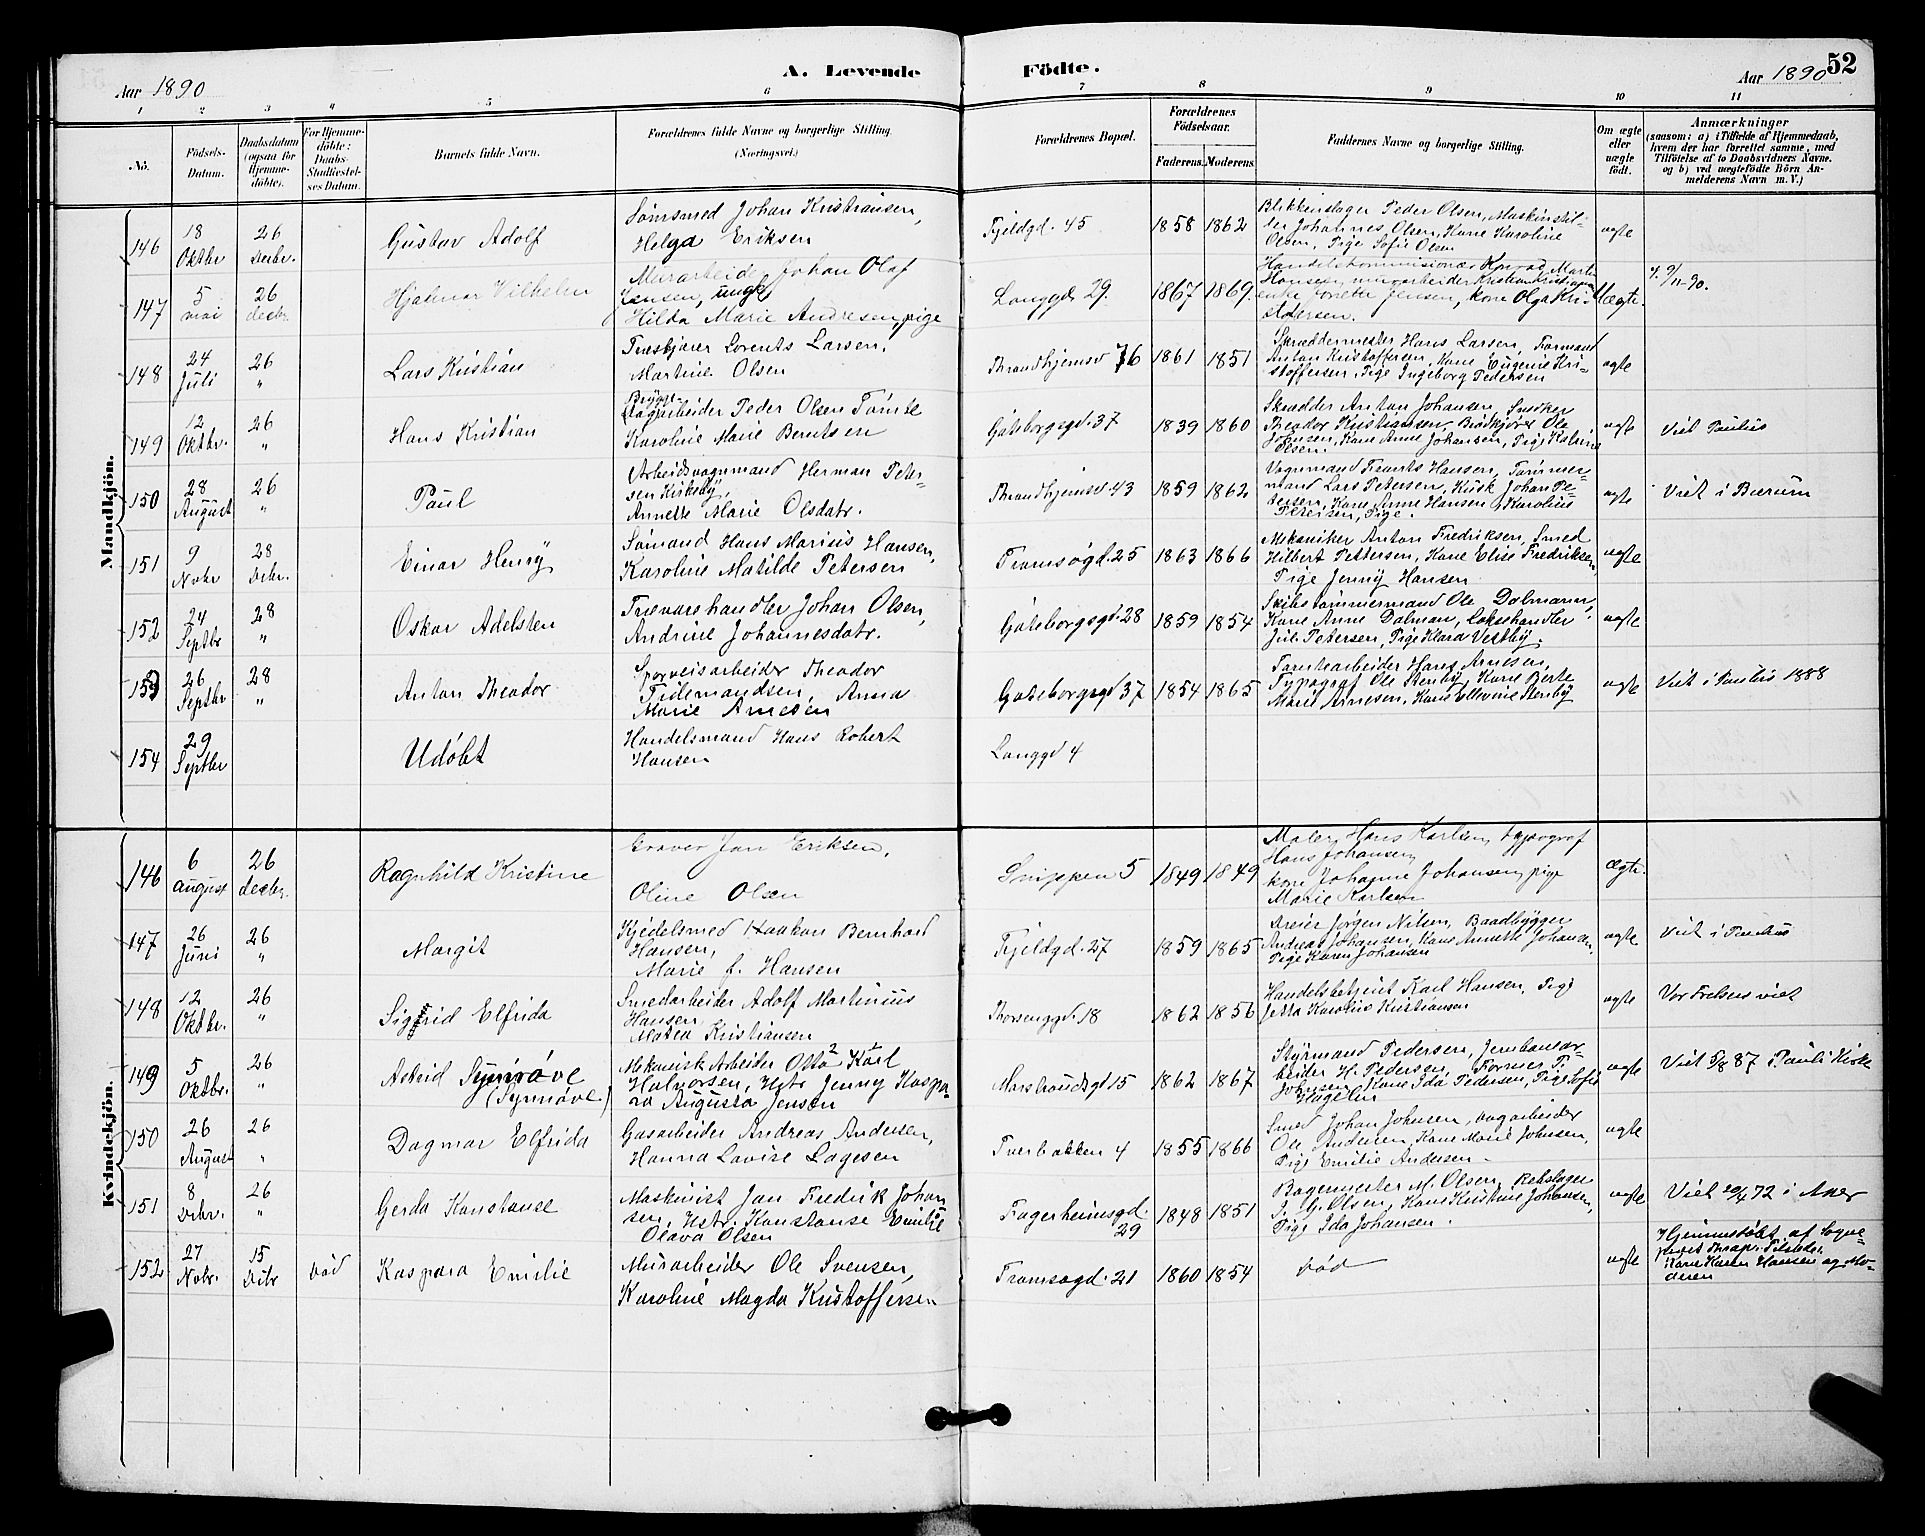 Aar 1890
A. Levende
Födte.
Aar 1890
52
1 2 3 4 5 6 7 8 9 10 11
No.
Födsels-
Datum.
Daabsdatum
(ogsaa for
Hjemme-
döbte).
For Hjemme-
döbte:
Daabs-
Stadfæstel-
ses Datum.
Barnets fulde Navn.
Forældrenes fulde Navne og borgerlige Stilling.
(Næringsvei.)
Forældrenes Bopæl.
Forældrenes
Födselsaar.
Faderens.
Moderens.
Faddernes Navne og borgerlige Stilling.
Om ægte
eller
uægte
födt.
Anmærkninger
(saasom: a) i Tilfælde af Hjemmedaab,
hvem der har forrettet samme, med
Tilföielse af to Daabsvidners Navne.
og b) ved uægtefödte Börn An-
melderens Navn m. V.)
Mandkjön.
146
18
Oktbr
26
Decbr.
Gustav Adolf
Sömsmed Johan Kristiansen,
Helga Eriksen
Fjeldgd. 45
1858
1862
Blikkenslager Peder Olsen, Maskinstil-
ler Johannes Olsen, Kone Karoline
Olsen, Pige Sofie Olsen
ægte
147
5
mai
26
decbr.
Hjalmar Vilhelm
Murarbeider Johan Olaf
Jensen, ungk
Hilda Marie Andresen, pige
Langgd. 29.
1867
1869.
Handelskommisionær Konrad Martin
Hansen, murarbeider Kristian Kristiansen
enke Josette Jensen, kone Olga Kri-
stoersen.
Uægte.
148
24
Juli
26
"
Lars Kristian
Træskjærer Lorents Larsen,
Martine Olsen
Throndhjemsv 76
1861
1851
Skræddermester Hans Larsen, Formand
Anton Kristoffersen, Kone Eugenie Kri-
stoffersen, Pige Ingeborg Pedersen
ægte
149
12
Oktbr.
26
"
Hans Kristian
Brygge-
Karoline Marie Berntsen
Göteborgsgd. 37
1839
1860
Skrædder Anton Johansen, Snedker
Theodor Kristiansen, Brödkjörer Ole
Johnsen, Kone Anne Johansen, Pige
Olsen.
ægte
Viet Paulus
150
28
August
26
"
Paul
Arbeidsvognmand Herman Peter-
sen Kirkeby,
Annette Marie Olsdatr.
Throndhjemsv 43
1859
1862
Vognmand Frants Hansen, Tömmer-
mand Lars Petersen, Kusk Johan Pe-
dersen, Kone Anne Hansen, Karoline
Petersen, Pige.
ægte
Viet i Bærum
151
9
Novbr
28
Decbr.
Einar Henry
Sömand Hans Marius Hansen,
Karoline Matilde Petersen
Tromsögd. 25
1863
1866
Mekaniker Anton Fredriksen, Smed
Hilbert Pettersen, Kone Elise Fredriksen,
Pige Jenny Hansen
ægte
152
24
Septbr
28
"
Oskar Adelsten
Trævarehandler Johan Olsen,
Andrine Johannesdatr.
Göteborgsgd. 28
1859
1854
Skibstömmermand Ole Dalmann,
Kone Anne Dalman,
Petersen, Pige Klara Vestby.
ægte
153
26
Septbr
28
"
Anton Theodor
Sporveisarbeider Theodor
Tidemandsen, Anna
Marie Arnesen
Göteborgsgd 37
1854
1865
Tomtearbeider Hans Arnesen,
Typograf Ole Stenby, Kone Berte
Marie Arnesen, Kone Ellevine Stenby
ægte
Viet i Paulus 1888
154
29
Septbr
Udöbt
Handelsmand Hans Robert
Hansen
Langgd 4
Kvindekjön.
146
6
august
26
decbr.
Ragnhild Kristine
Graver Jan Eriksen,
Oline Olsen
Snippen 5
1849
1849
Maler Hans Karlsen, typograf
Hans Johansen,
kone Johanne Johansen, pige
Marie Karlsen
Ægte.
147
26
Juni
26
"
Margit
Kjedelsmed Haakon Bernhard
Hansen,
Marie f. Hansen
Fjeldgd. 27
1859
1865
Dreier Jörgen Nilsen, Baadbygger
Andreas Johansen, Kone Annette Johansen,
Pige Karen Johansen
ægte
Viet i Paulus
148
12
Oktbr.
26
"
Sigfrid Elfrida
Smedarbeider Adolf Martinius
Hansen
Matea Kristiansen
Thorsenggd. 18
1862
1856
Handelsbetjent Karl Hansen, Pige
Jetta Karoline Kristiansen
ægte
Vor Frelsers viet
149
5
Oktbr.
26
"
Astrid Synnöve
(Synnöve)
Mekanisk Arbeider Otto Karl
Halvorsen, Hstr. Jenny Kaspa-
ra Augusta Jensen
Marstrandsgd 15
1862
1867
Styrmand Pedersen, Jernbanear-
beider H. Pedersen, Former T.
Johnsen, Kone Ida Pedersen, Pige Sofie
Hagelin
ægte
Viet 5/8 87 Pauli Kirke
150
26
August
26
"
Dagmar Elfrida
Gasarbeider Andreas Andersen,
Hanna Lovise Lagesen
Tverbakken 4
1855
1866
Smed Johan Johnsen, Dagarbeider
Ole Andersen, Kone Marie Johnsen,
Pige Emilie Andersen.
ægte
151
8
Decbr.
26
"
Gerda Konstanse
Maskinist Jan Fredrik Johan
sen, Hstr. Konstanse Emilie
Olava Olsen
Fagerheimsgd.
29
1848
1851
Bagermester M. Olsen, Rebslager
J. G. Olsen, Kone Kristine Johansen,
Pige Ida Johansen.
ægte
Viet 20/4 72 i Aker
152
27
Novbr.
15
Decbr
död
Kaspara Emilie
Murarbeider Ole Svensen,
Karoline Magda Kristoffersen
Tromsögd. 21
1860
1854
död
ægte
Hjemmedöbt af Sogne-
prest Thrap. Tilstede:
Kone Karen Hansen og Mo-
deren